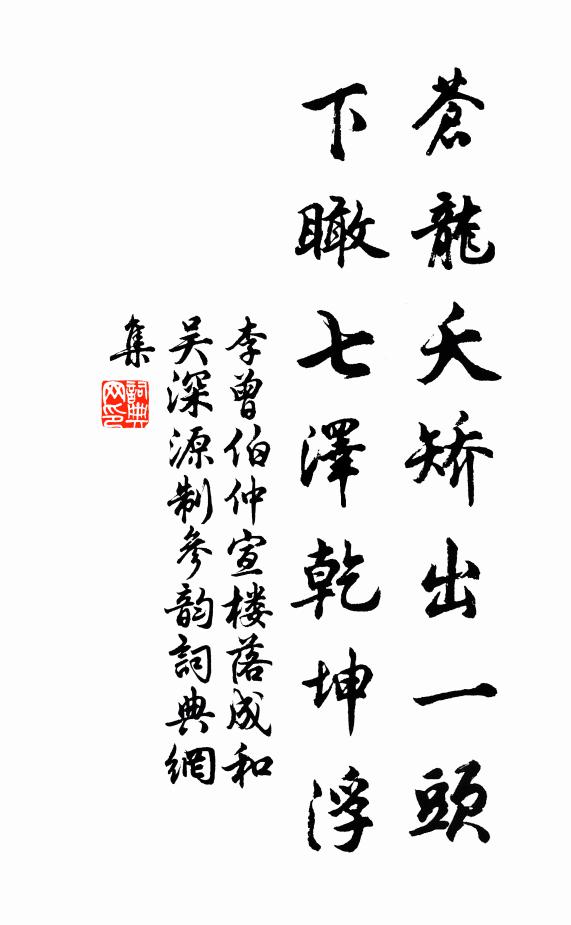 蒼龍夭矯出一頭
下瞰七澤乾坤浮
李曾伯仲宣楼落成和
吴深源制參韵詞典網
集
詞典
网印